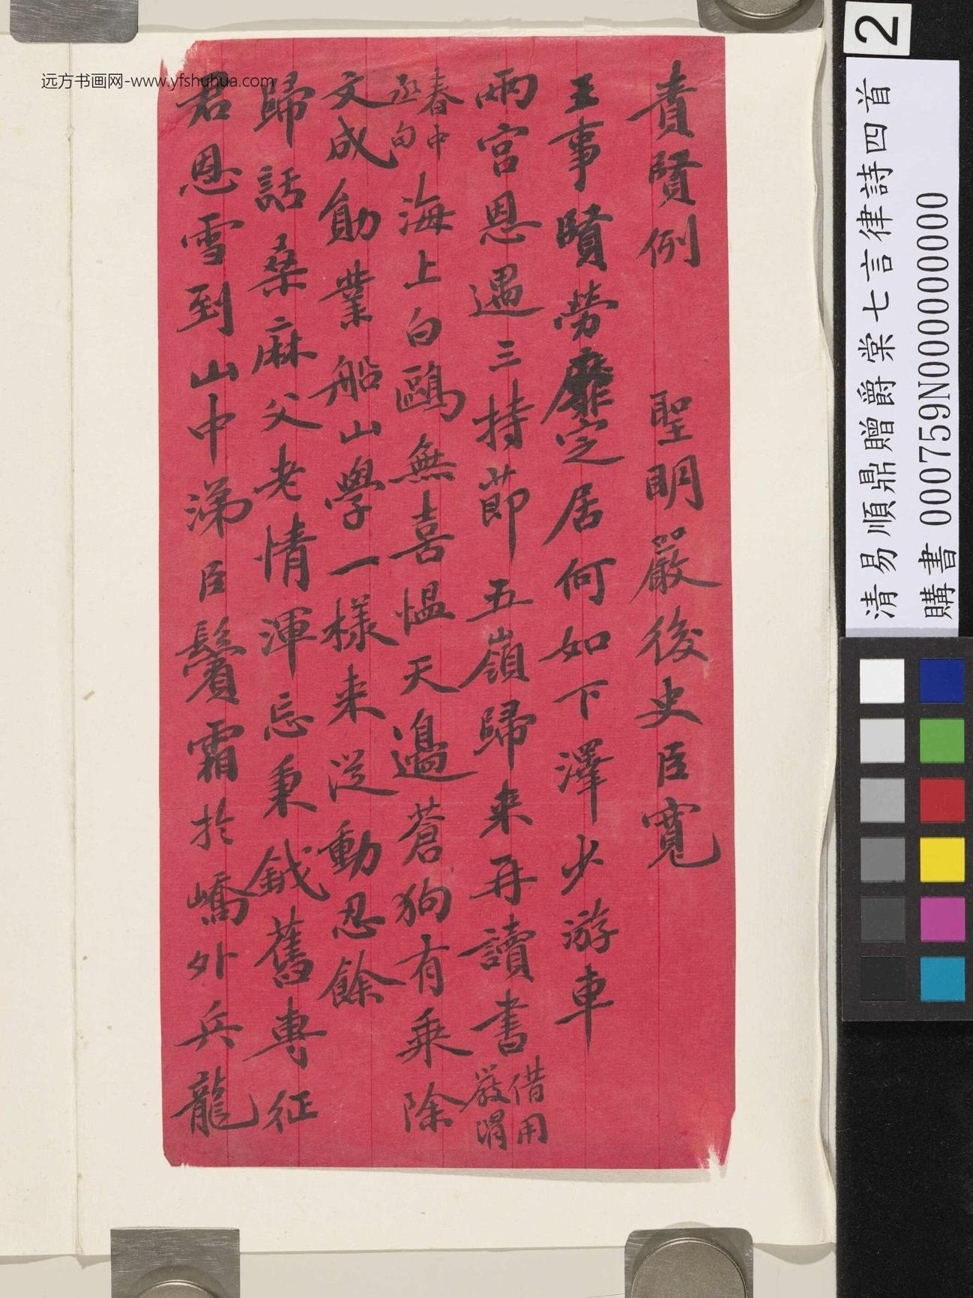 責賢例　聖明嚴後史臣寬
王事賢勞靡定居何如下澤少游車
兩宮恩遇三持節五嶺歸來再讀書借用
嚴渭
春中
丞句海上白鷗無喜愠天邊蒼狗有乘除
文成勛業船山學一樣來從動忍餘
歸話桑麻父老情渾忘秉鉞舊專征
君恩雪到山中涕臣鬢霜於嶠外兵龍
远方书画网-www.yfshuhua.com
2
清易順鼎贈爵棠七言律詩四首
購書 000759N000000000